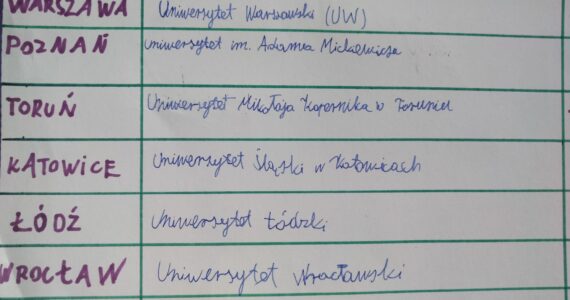 WARSZAWA Uniwersytet Warszawski (UW)
POZNAŃ Uniwersytet im. Adama Mickiewicza
TORUŃ Uniwersytet Mikołaja Kopernika w Toruniu
KATOWICE Uniwersytet Śląski w Katowicach
ŁÓDŹ Uniwersytet Łódzki
WROCŁAW Uniwersytet Wrocławski